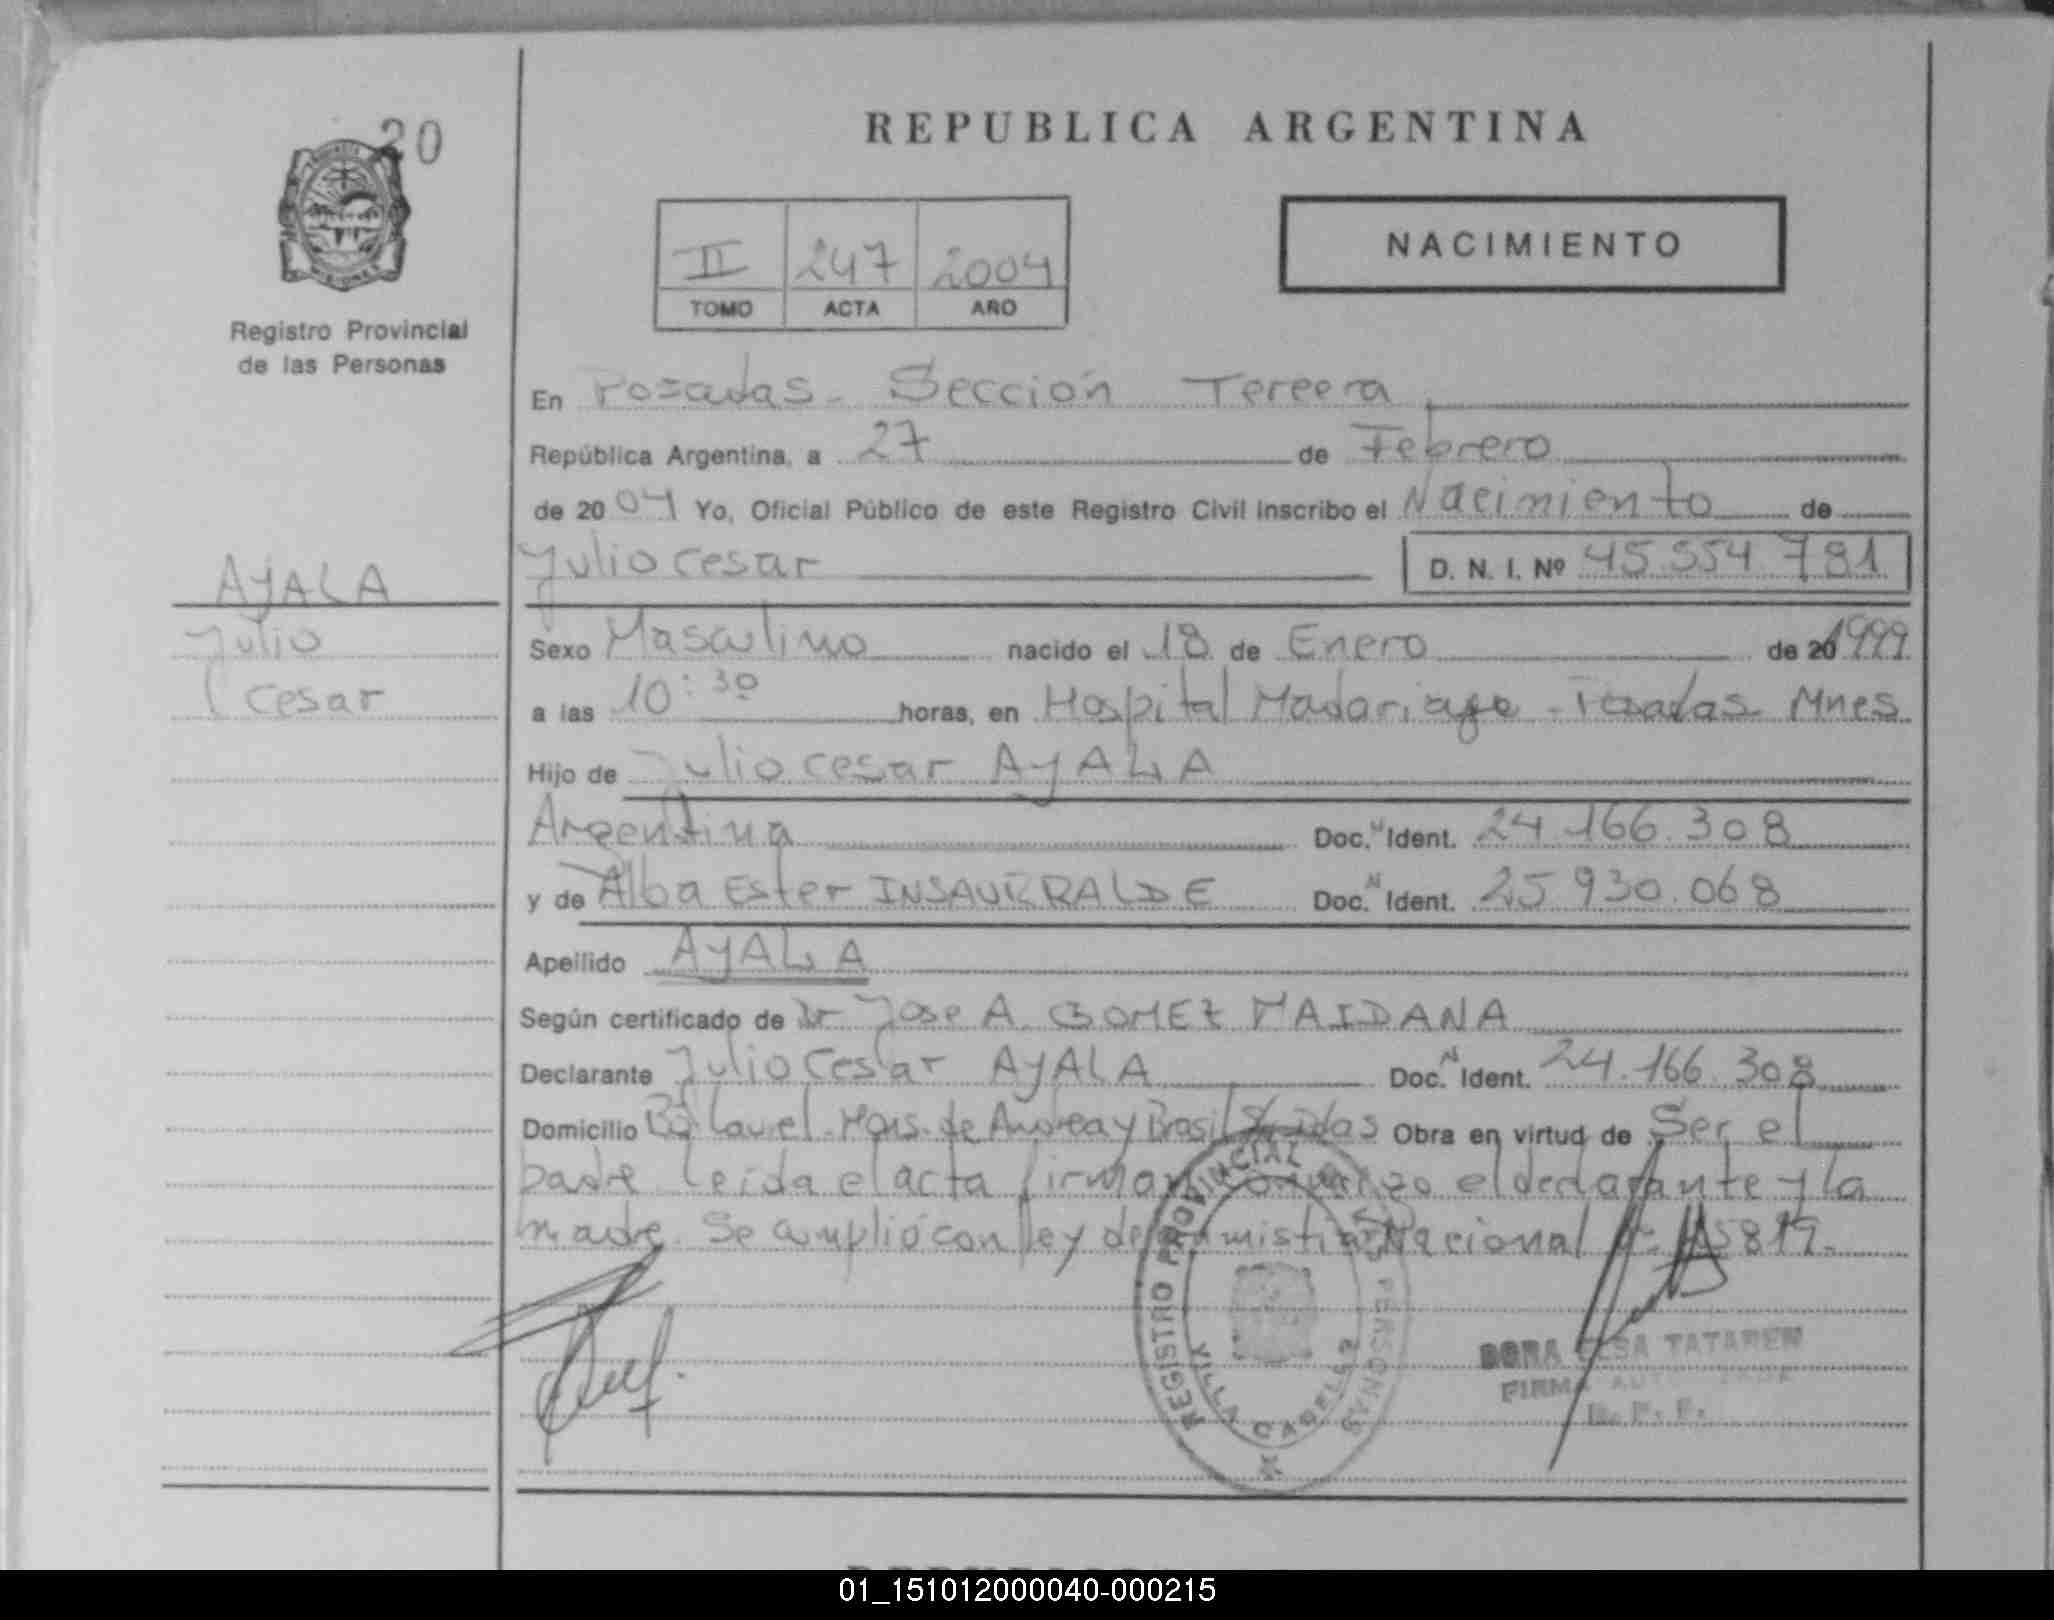 20
REPUBLICA ARGENTINA
II 247 2004
TOMO ACTA AÑO
NACIMIENTO
Registro Provincial
de las Personas
En Posadas - Sección Tercera
República Argentina, a 27 de Febrero
de 2004 Yo, Oficial Público de este Registro Civil inscribo el Nacimiento de
Julio Cesar D. N. I. Nº 45.554.781
AYALA
Julio
Cesar
Sexo Masculino nacido el 18 de Enero de 20 1999
a las 10:30 horas, en Hospital Madariaga - Posadas Mnes
Hijo de Julio Cesar AYALA
Argentina Doc. N Ident. 24.166.308
y de Alba Ester INSAURRALDE Doc. N Ident. 25.930.068
Apellido AYALA
Según certificado de Dr Jose A. GOMEZ MAIDANA
Declarante Julio Cesar AYALA Doc. N Ident. 24.166.308
Domicilio Bº Laurel y Brasil Obra en virtud de Ser el
padre Leida el acta firman conmigo el declarante y la
madre. Se cumplió con ley de Amistia Nacional
REGISTRO PROVINCIAL DE LAS PERSONAS
VILLA CABELLO
TATAREN
FIRMA AUTORIZADA
R. P. P.
01_151012000040-000215